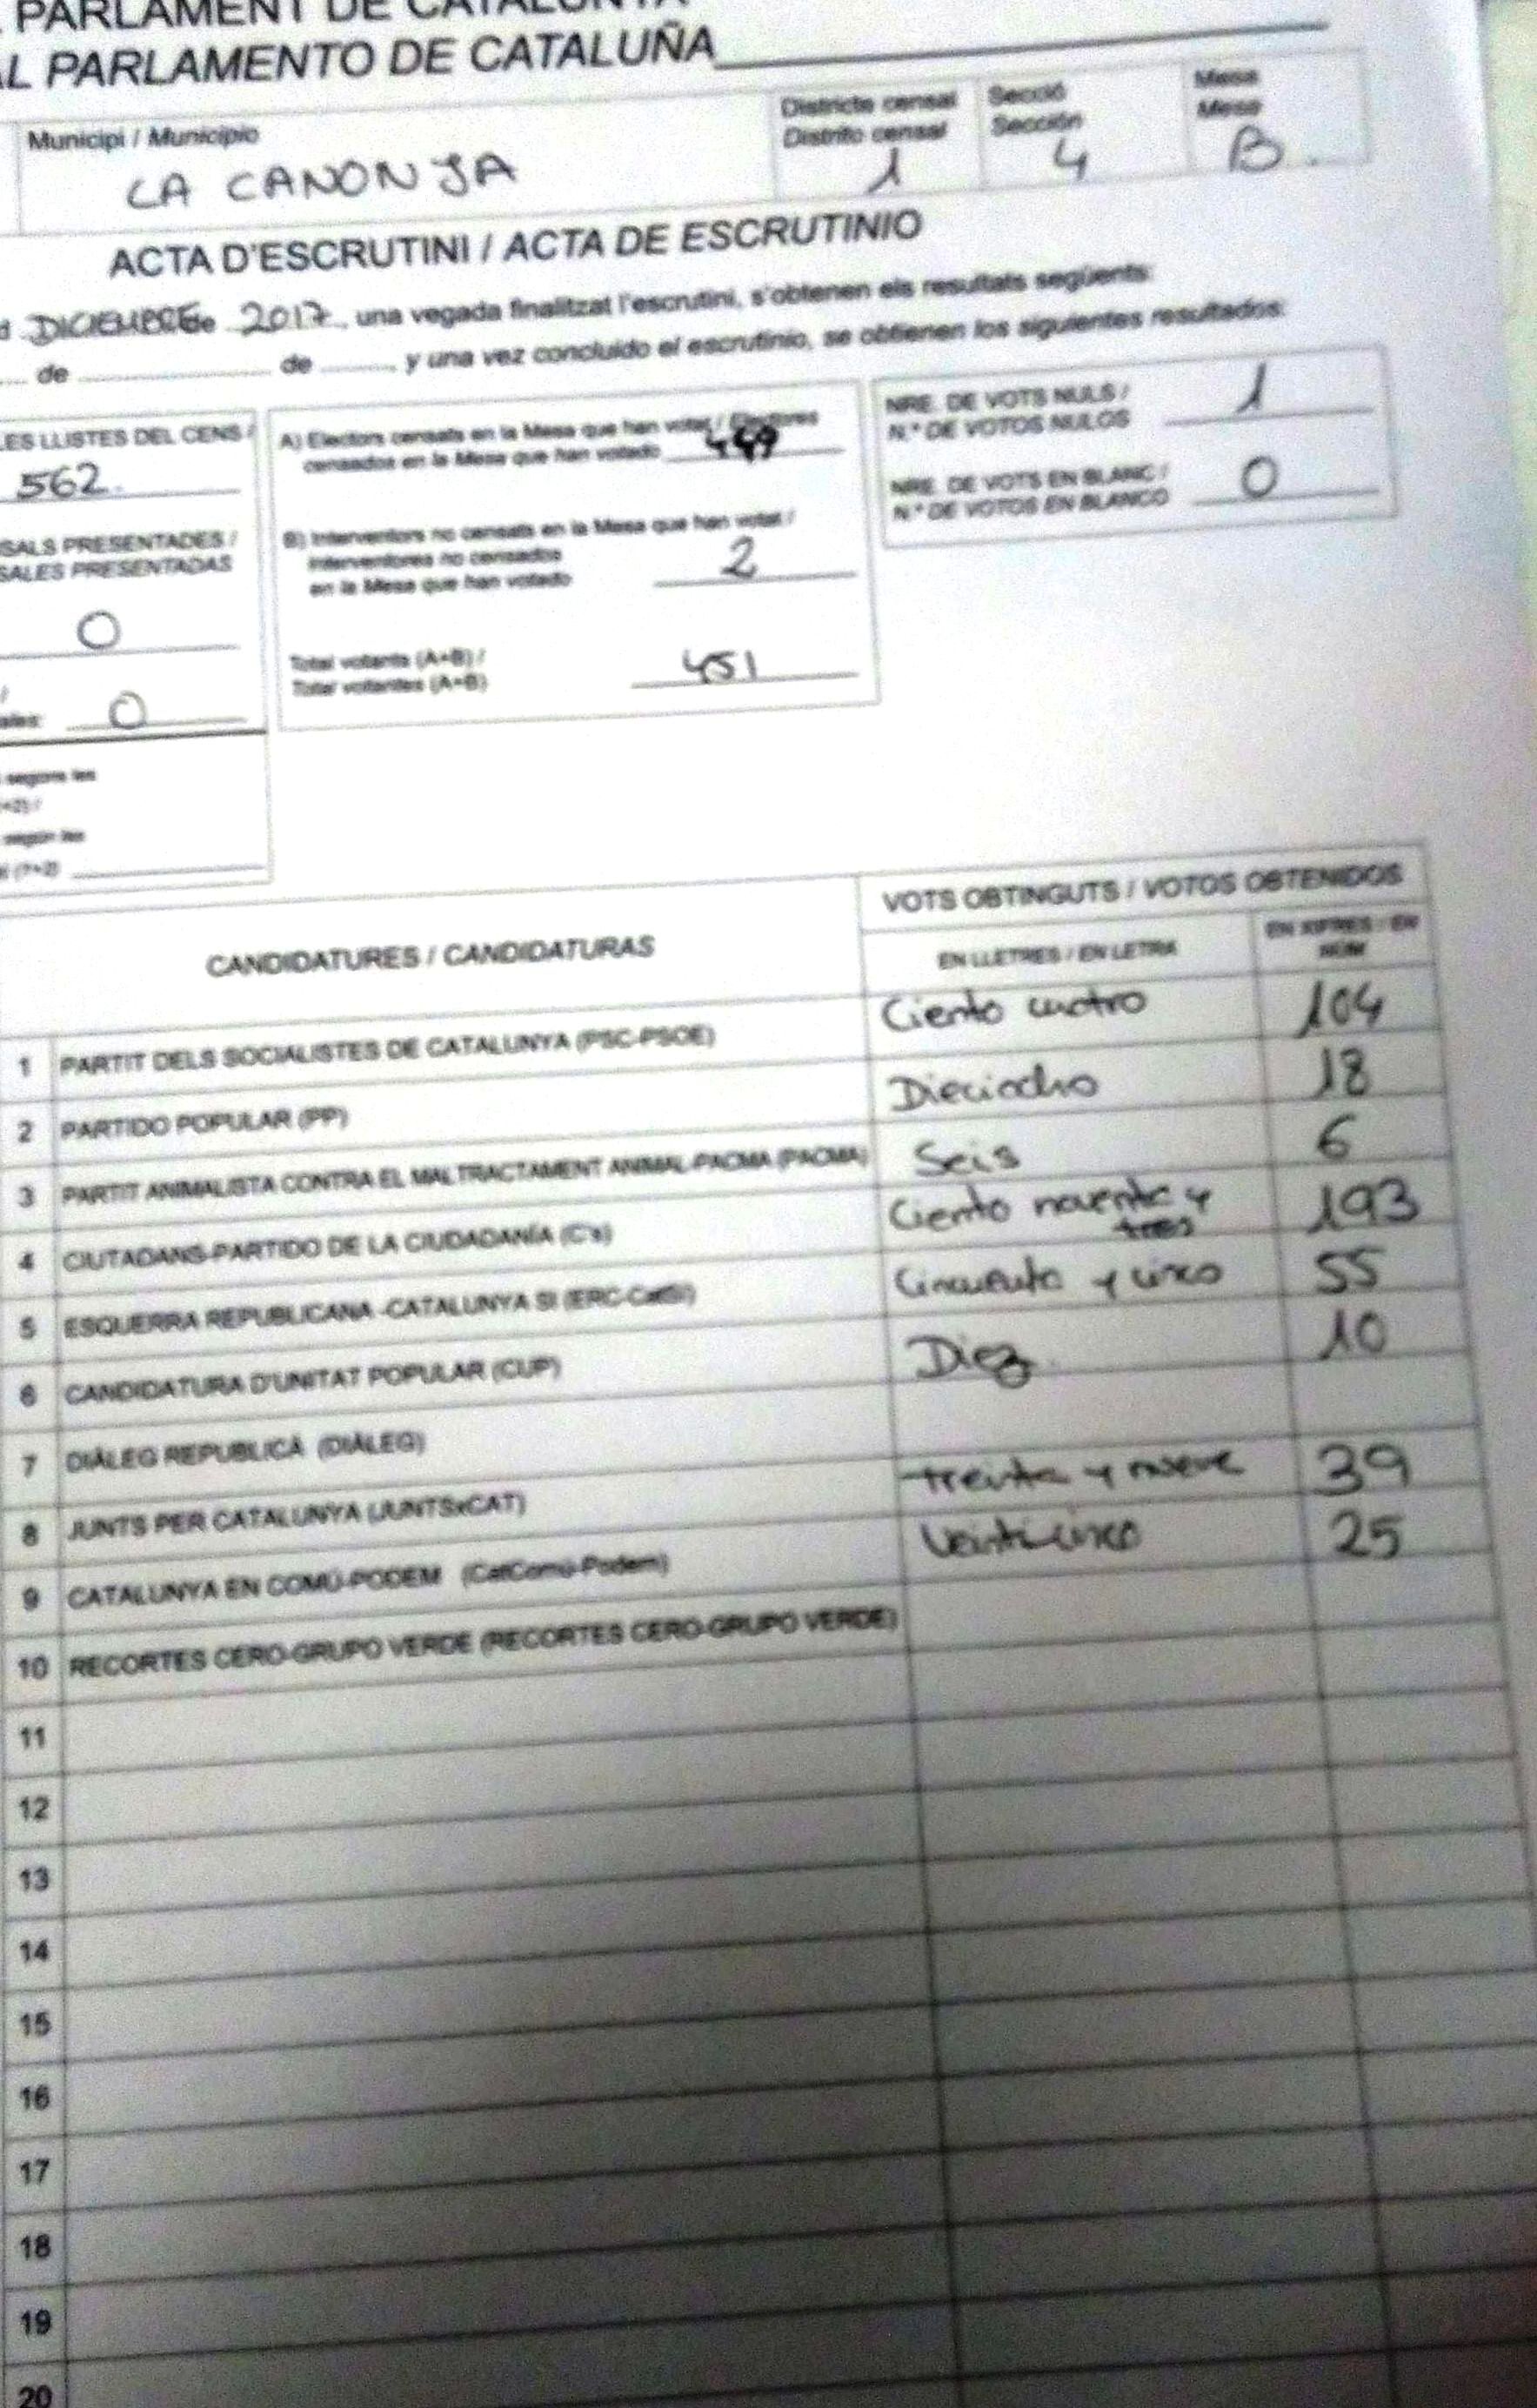 PARLAMENT DE CATALUNYA
AL PARLAMENTO DE CATALUÑA
Municipi / Municipio
LA CANONJA
Districte censal
Distrito censal
1
Secció
Sección
4
Mesa
Mesa
B
ACTA D'ESCRUTINI / ACTA DE ESCRUTINIO
d DICIEMBRE de 2017, una vegada finalitzat l'escrutini, s'obtenen els resultats següents:
de de , y una vez concluido el escrutinio, se obtienen los siguientes resultados:
LES LLISTES DEL CENS /
562
SALS PRESENTADES /
SALES PRESENTADAS
0
/
ales: 0
segons les
+2) /
según les
(1+2)
A) Electors censats en la Mesa que han votat / Electores
censados en la Mesa que han votado 449
B) Interventors no censats en la Mesa que han votat /
Interventores no censados
en la Mesa que han votado 2
Total votants (A+B) /
Total votantes (A+B) 451
NRE. DE VOTS NULS /
N.º DE VOTOS NULOS 1
NRE. DE VOTS EN BLANC /
N.º DE VOTOS EN BLANCO 0
CANDIDATURES / CANDIDATURAS
VOTS OBTINGUTS / VOTOS OBTENIDOS
EN LLETRES / EN LETRA
EN XIFRES / EN
NÚM
1 PARTIT DELS SOCIALISTES DE CATALUNYA (PSC-PSOE) Ciento cuatro 104
2 PARTIDO POPULAR (PP) Dieciocho 18
3 PARTIT ANIMALISTA CONTRA EL MALTRACTAMENT ANIMAL-PACMA (PACMA) Seis 6
4 CIUTADANS-PARTIDO DE LA CIUDADANÍA (C's) Ciento noventa y
tres 193
5 ESQUERRA REPUBLICANA -CATALUNYA SI (ERC-CatSí) Cincuenta y cinco 55
6 CANDIDATURA D'UNITAT POPULAR (CUP) Diez 10
7 DIÀLEG REPUBLICÀ (DIÀLEG)
8 JUNTS PER CATALUNYA (JUNTSxCAT) treinta y nueve 39
9 CATALUNYA EN COMÚ-PODEM (CatComú-Podem) Veinticinco 25
10 RECORTES CERO-GRUPO VERDE (RECORTES CERO-GRUPO VERDE)
11
12
13
14
15
16
17
18
19
20